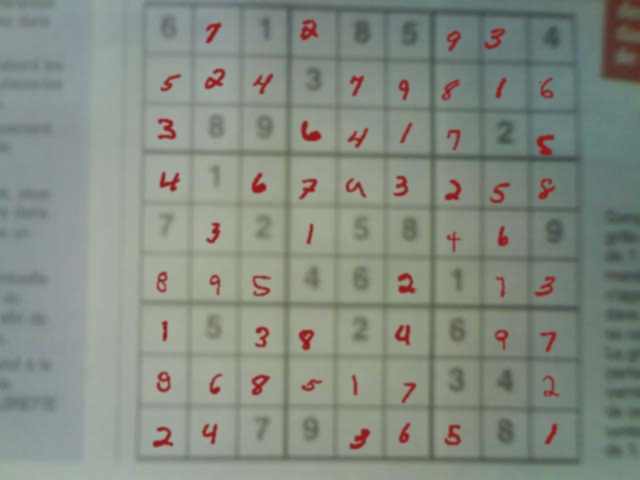 6 7 1 2 8 5 9 3 4
5 2 4 3 7 9 8 1 6
3 8 9 6 4 1 7 2 5
4 1 6 7 9 3 2 5 8
7 3 2 1 5 8 4 6 9
8 9 5 4 6 2 1 7 3
1 5 3 8 2 4 6 9 7
9 6 8 5 1 7 3 4 2
2 4 7 9 3 6 5 8 1